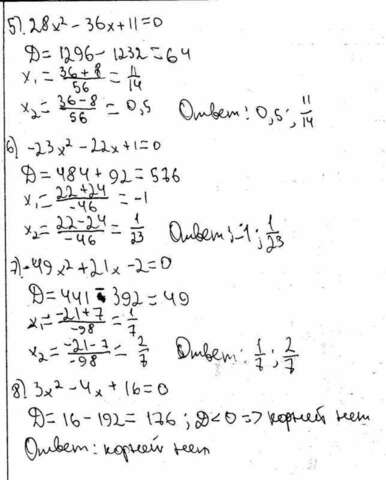 5) 28x² - 36x + 11 = 0
D = 1296 - 1232 = 64
x₁ = (36 + 8)/56 = 11/14
x₂ = (36 - 8)/56 = 0,5 Ответ: 0,5; 11/14
6) -23x² - 22x + 1 = 0
D = 484 + 92 = 576
x₁ = (22 + 24)/-46 = -1
x₂ = (22 - 24)/-46 = 1/23 Ответ: -1; 1/23
7) -49x² + 21x - 2 = 0
D = 441 - 392 = 49
x₁ = (-21 + 7)/-98 = 1/7
x₂ = (-21 - 7)/-98 = 2/7 Ответ: 1/7; 2/7
8) 3x² - 4x + 16 = 0
D = 16 - 192 = 176; D < 0 => корней нет
Ответ: корней нет